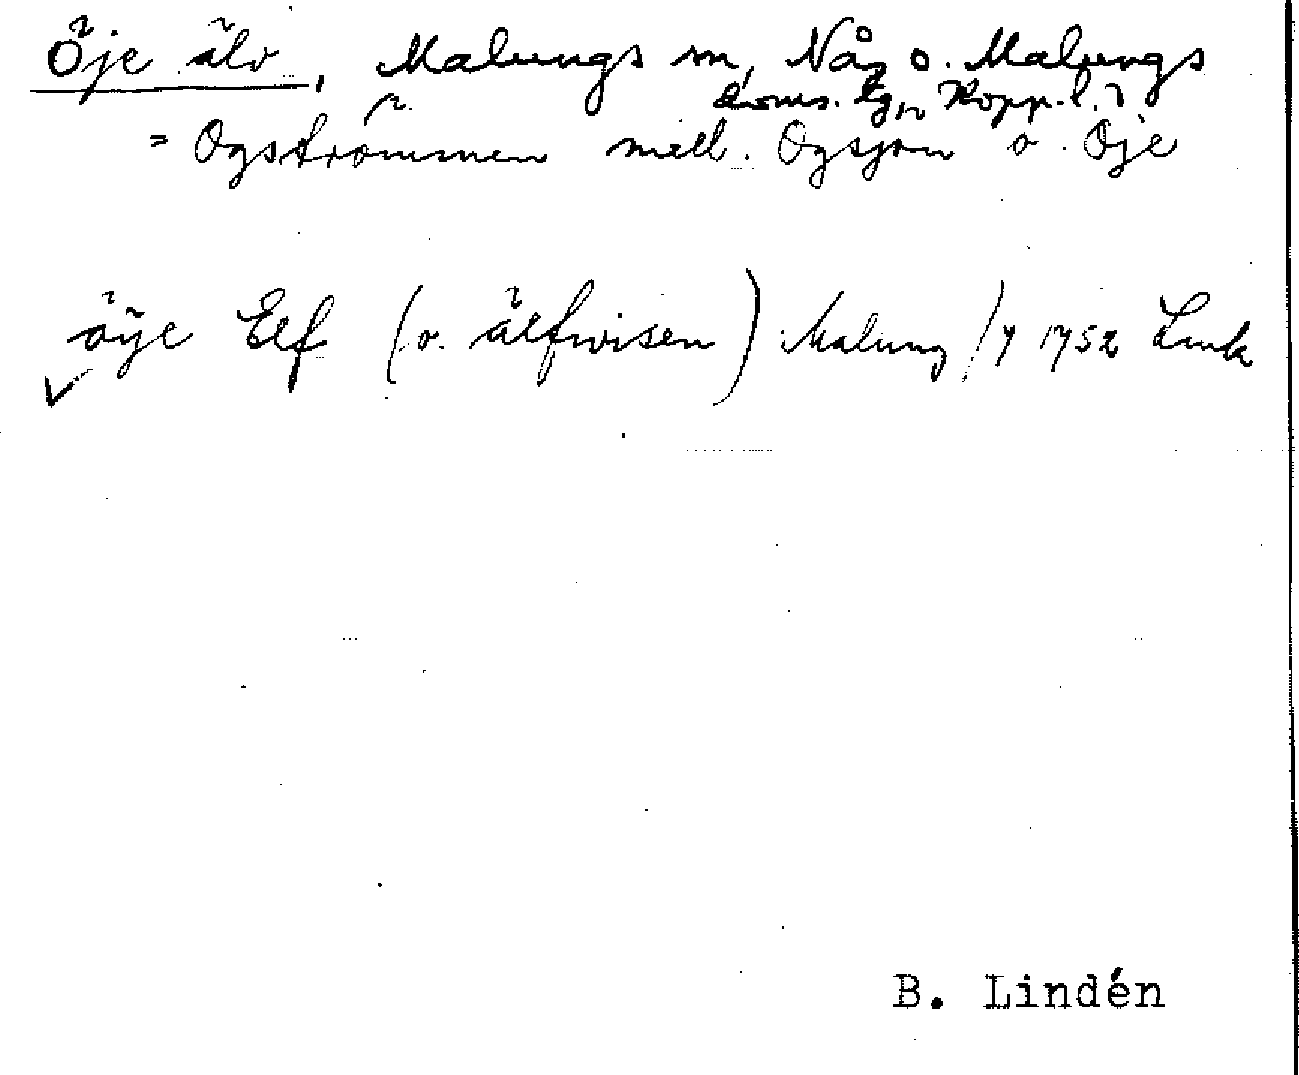 Öje älv, Malungs sn, Nås o. Malungs
doms. tg, Kopp. l.
= Ogströmmen mell. Ogsjön o. Öje
öije Elf (o. älfwisen) Malung / y 1752 Lmk
B. Lindén